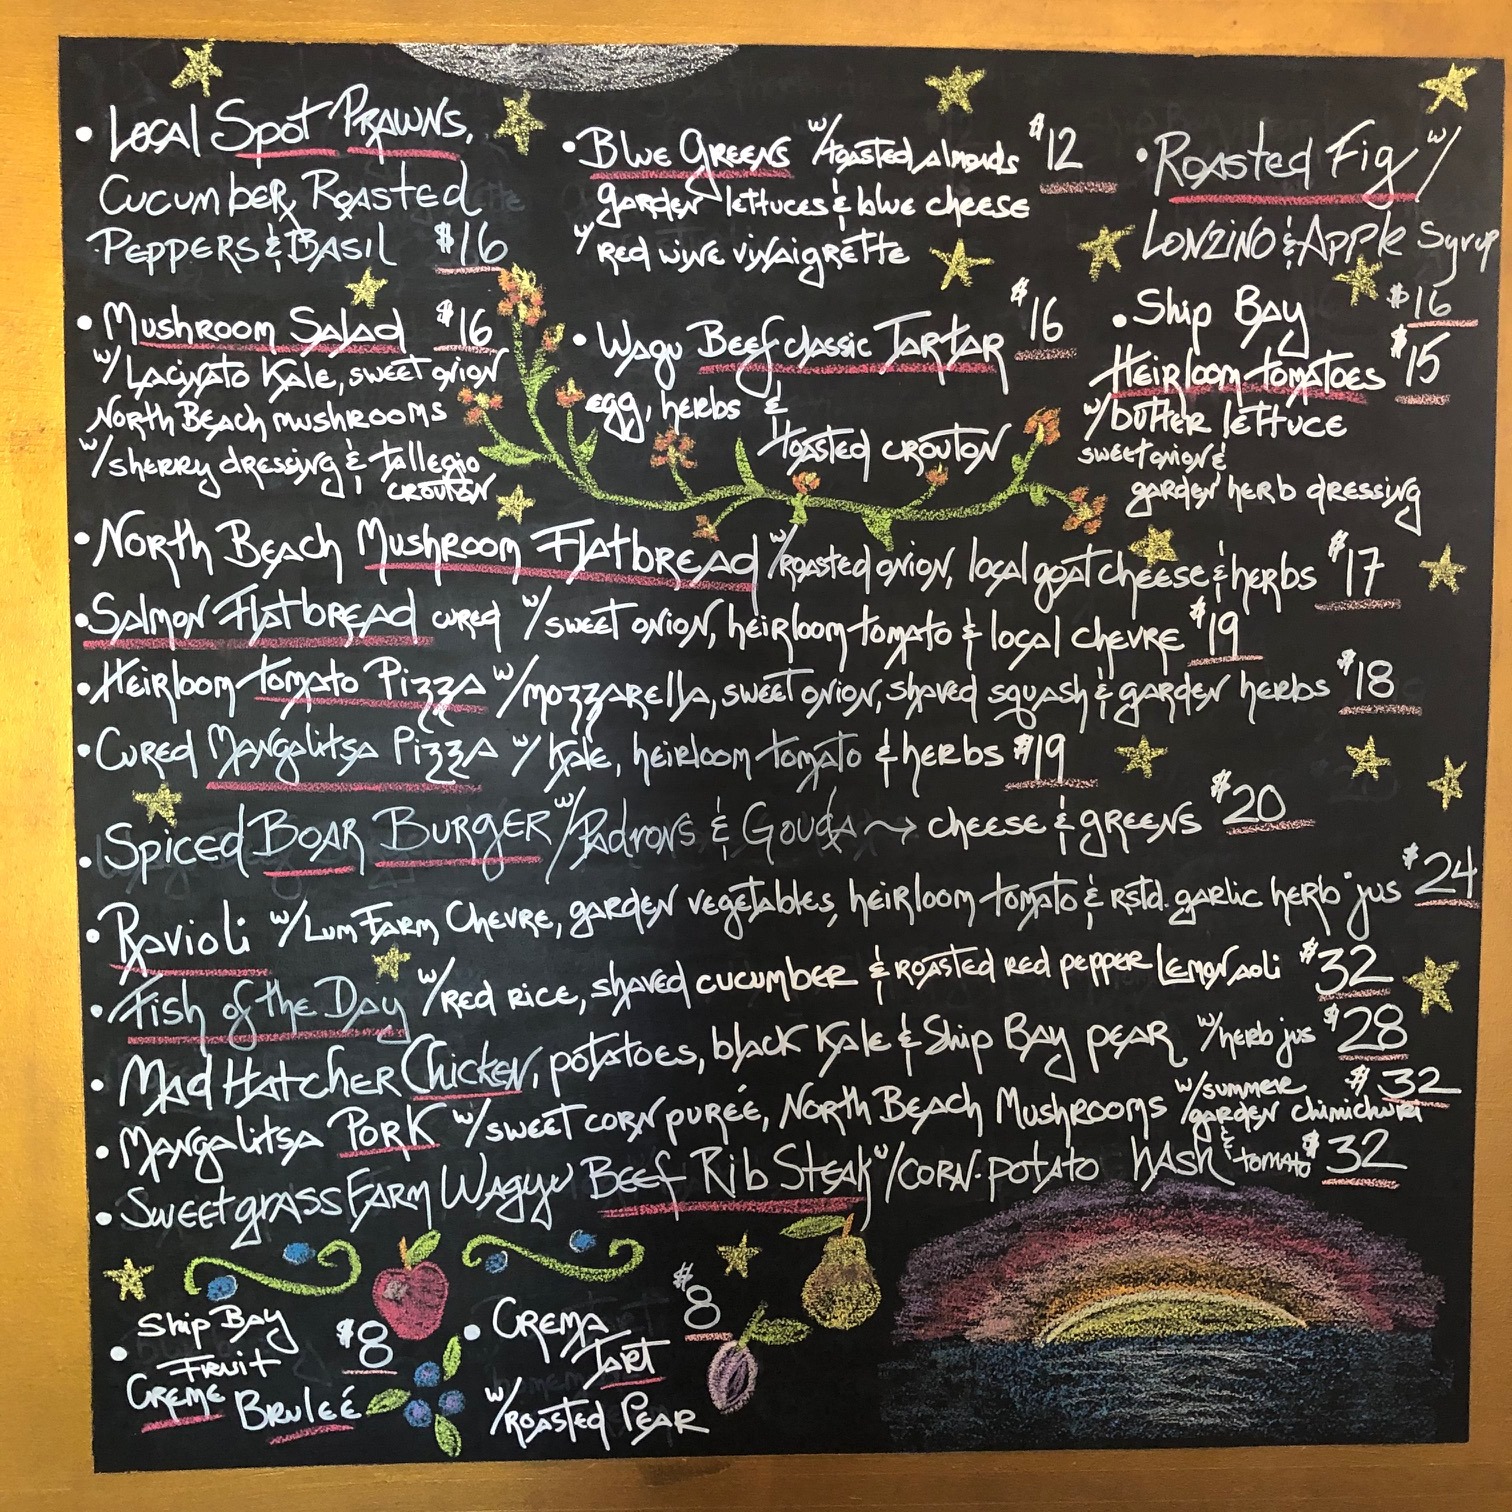 • Local Spot Prawns,
Cucumber, Roasted
Peppers & Basil $16
• Mushroom Salad $16
w/ Lacinato Kale, sweet onion
North Beach mushrooms
w/ sherry dressing & tallegio
crouton
• Blue Greens w/ toasted almonds $12
garden lettuces & blue cheese
w/ red wine vinaigrette
• Wagu Beef classic Tartar $16
egg, herbs &
toasted crouton
• Roasted Fig w/
Lonzino & Apple Syrup
$16
• Ship Bay
Heirloom tomatoes $15
w/ butter lettuce
sweet onion &
garden herb dressing
• North Beach Mushroom Flatbread w/ roasted onion, local goat cheese & herbs $17
• Salmon Flatbread cured w/ sweet onion, heirloom tomato & local chevre $19
• Heirloom tomato Pizza w/ mozzarella, sweet onion, shaved squash & garden herbs $18
• Cured Mangalitsa Pizza w/ Kale, heirloom tomato & herbs $19
• Spiced Boar Burger w/ Padrons & Gouda → cheese & greens $20
• Ravioli w/ Lum Farm Chevre, garden vegetables, heirloom tomato & rstd. garlic herb jus $24
• Fish of the Day w/ red rice, shaved cucumber & roasted red pepper Lemon aoli $32
• Mad Hatcher Chicken, potatoes, black Kale & Ship Bay pear w/ herb jus $28
• Mangalitsa Pork w/ sweet corn pureé, North Beach Mushrooms w/ summer garden chimichuri $32
• Sweetgrass Farm Wagyu Beef Rib Steak w/ corn-potato hash & tomato $32
• Ship Bay
Fruit $8
Creme Bruleé
• Crema $8
Tart
w/ roasted Pear